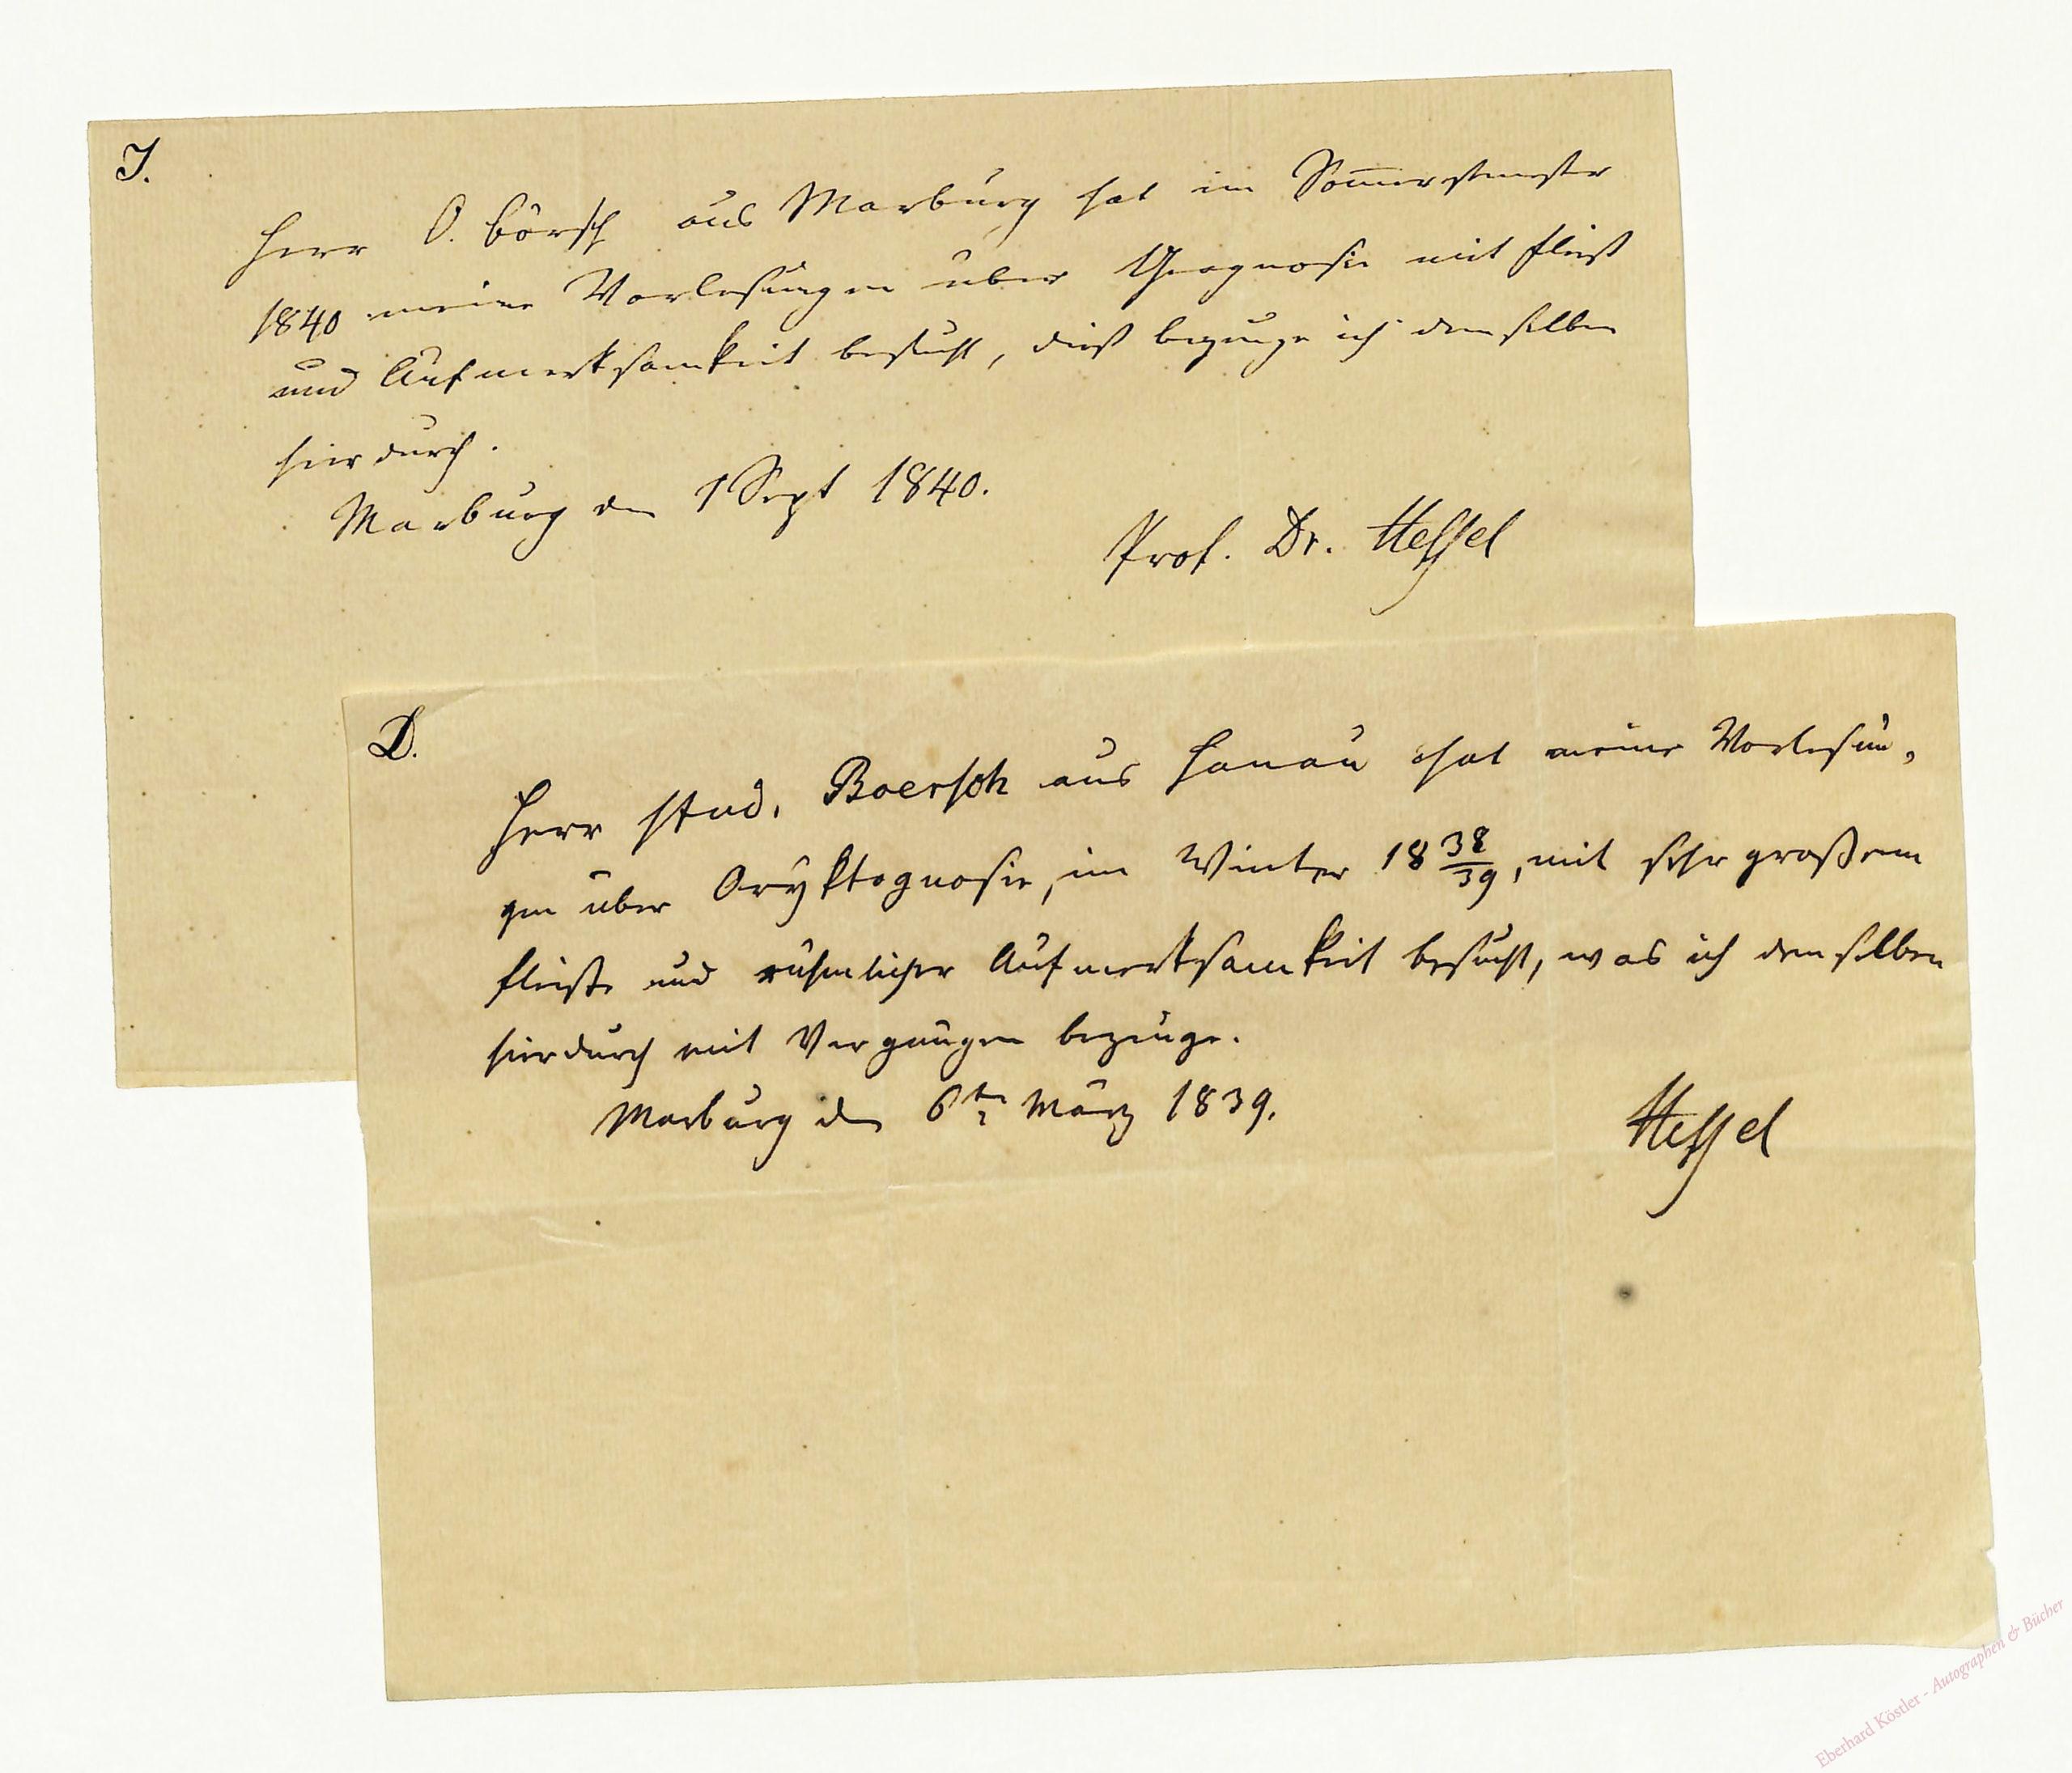 J.
Herr O. Börsch aus Marburg hat im Sommersemester
1840 meine Vorlesungen über Geognosie mit Fleiß
und Aufmerksamkeit besucht, dieß bezeuge ich demselben
hierdurch.
Marburg den 1 Sept 1840.
Prof. Dr. Hessel
D.
Herr stud. Boersch aus Hanau hat meine Vorlesun,
gen über Oryktognosie, im Winter 18 38/39, mit sehr großem
Fleiße und rühmlicher Aufmerksamkeit besucht, was ich demselben
hierdurch mit Vergnügen bezeuge.
Marburg den 6ten März 1839.
Hessel
Eberhard Köstler - Autographen & Bücher